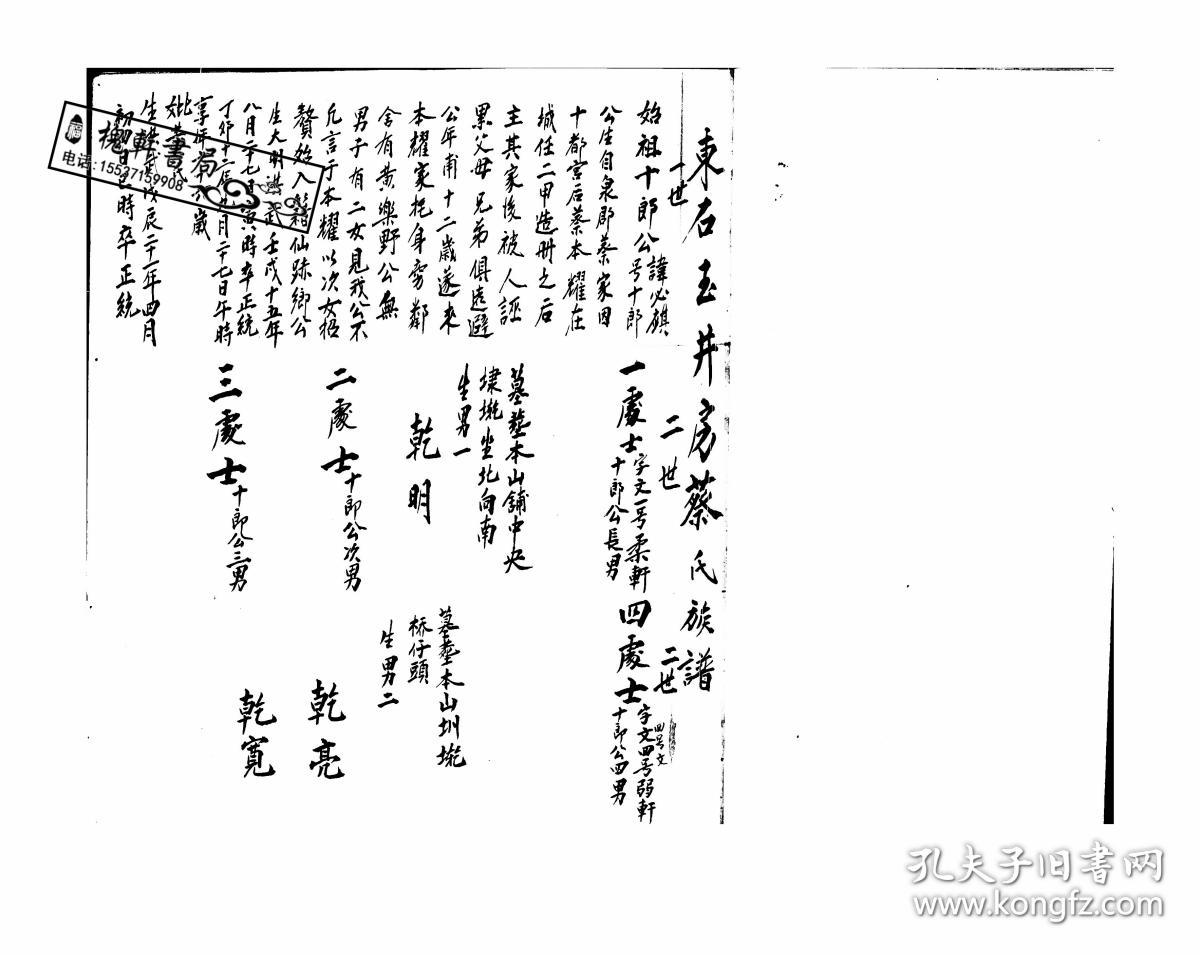 東石玉井房蔡氏族譜
一世
始祖十郎公諱必麒
号十郎
公生自泉郡蔡家因
十都宮后蔡本耀在
城任二甲造册之后
主其家後被人誣
累父母兄弟俱遠避
公年甫十二歲遂來
本耀家托身旁鄰
舍有黃樂野公無
男子有二女見我公不
凡言于本耀以次女招
贅始入籍仙跡鄉公
生大明洪武壬戌十五年
八月二十七日寅時卒正統
丁卯十二年 月二十七日午時
享年 六歲
妣黃氏
生洪武戊辰二十一年四月
初 日巳時卒正統
二世
一處士字文一号柔軒
十郎公長男
墓塟本山舖中央
埭墘坐北向南
生男一
乾明
二處士十郎公次男
三處士十郎公三男
二世
四處士字文四号弱軒
十郎公四男
四号文
墓塟本山圳墘
桥仔頭
生男二
乾亮
乾寬
槐軒書局
福
电话:15537159908
孔夫子旧书网
www.kongfz.com